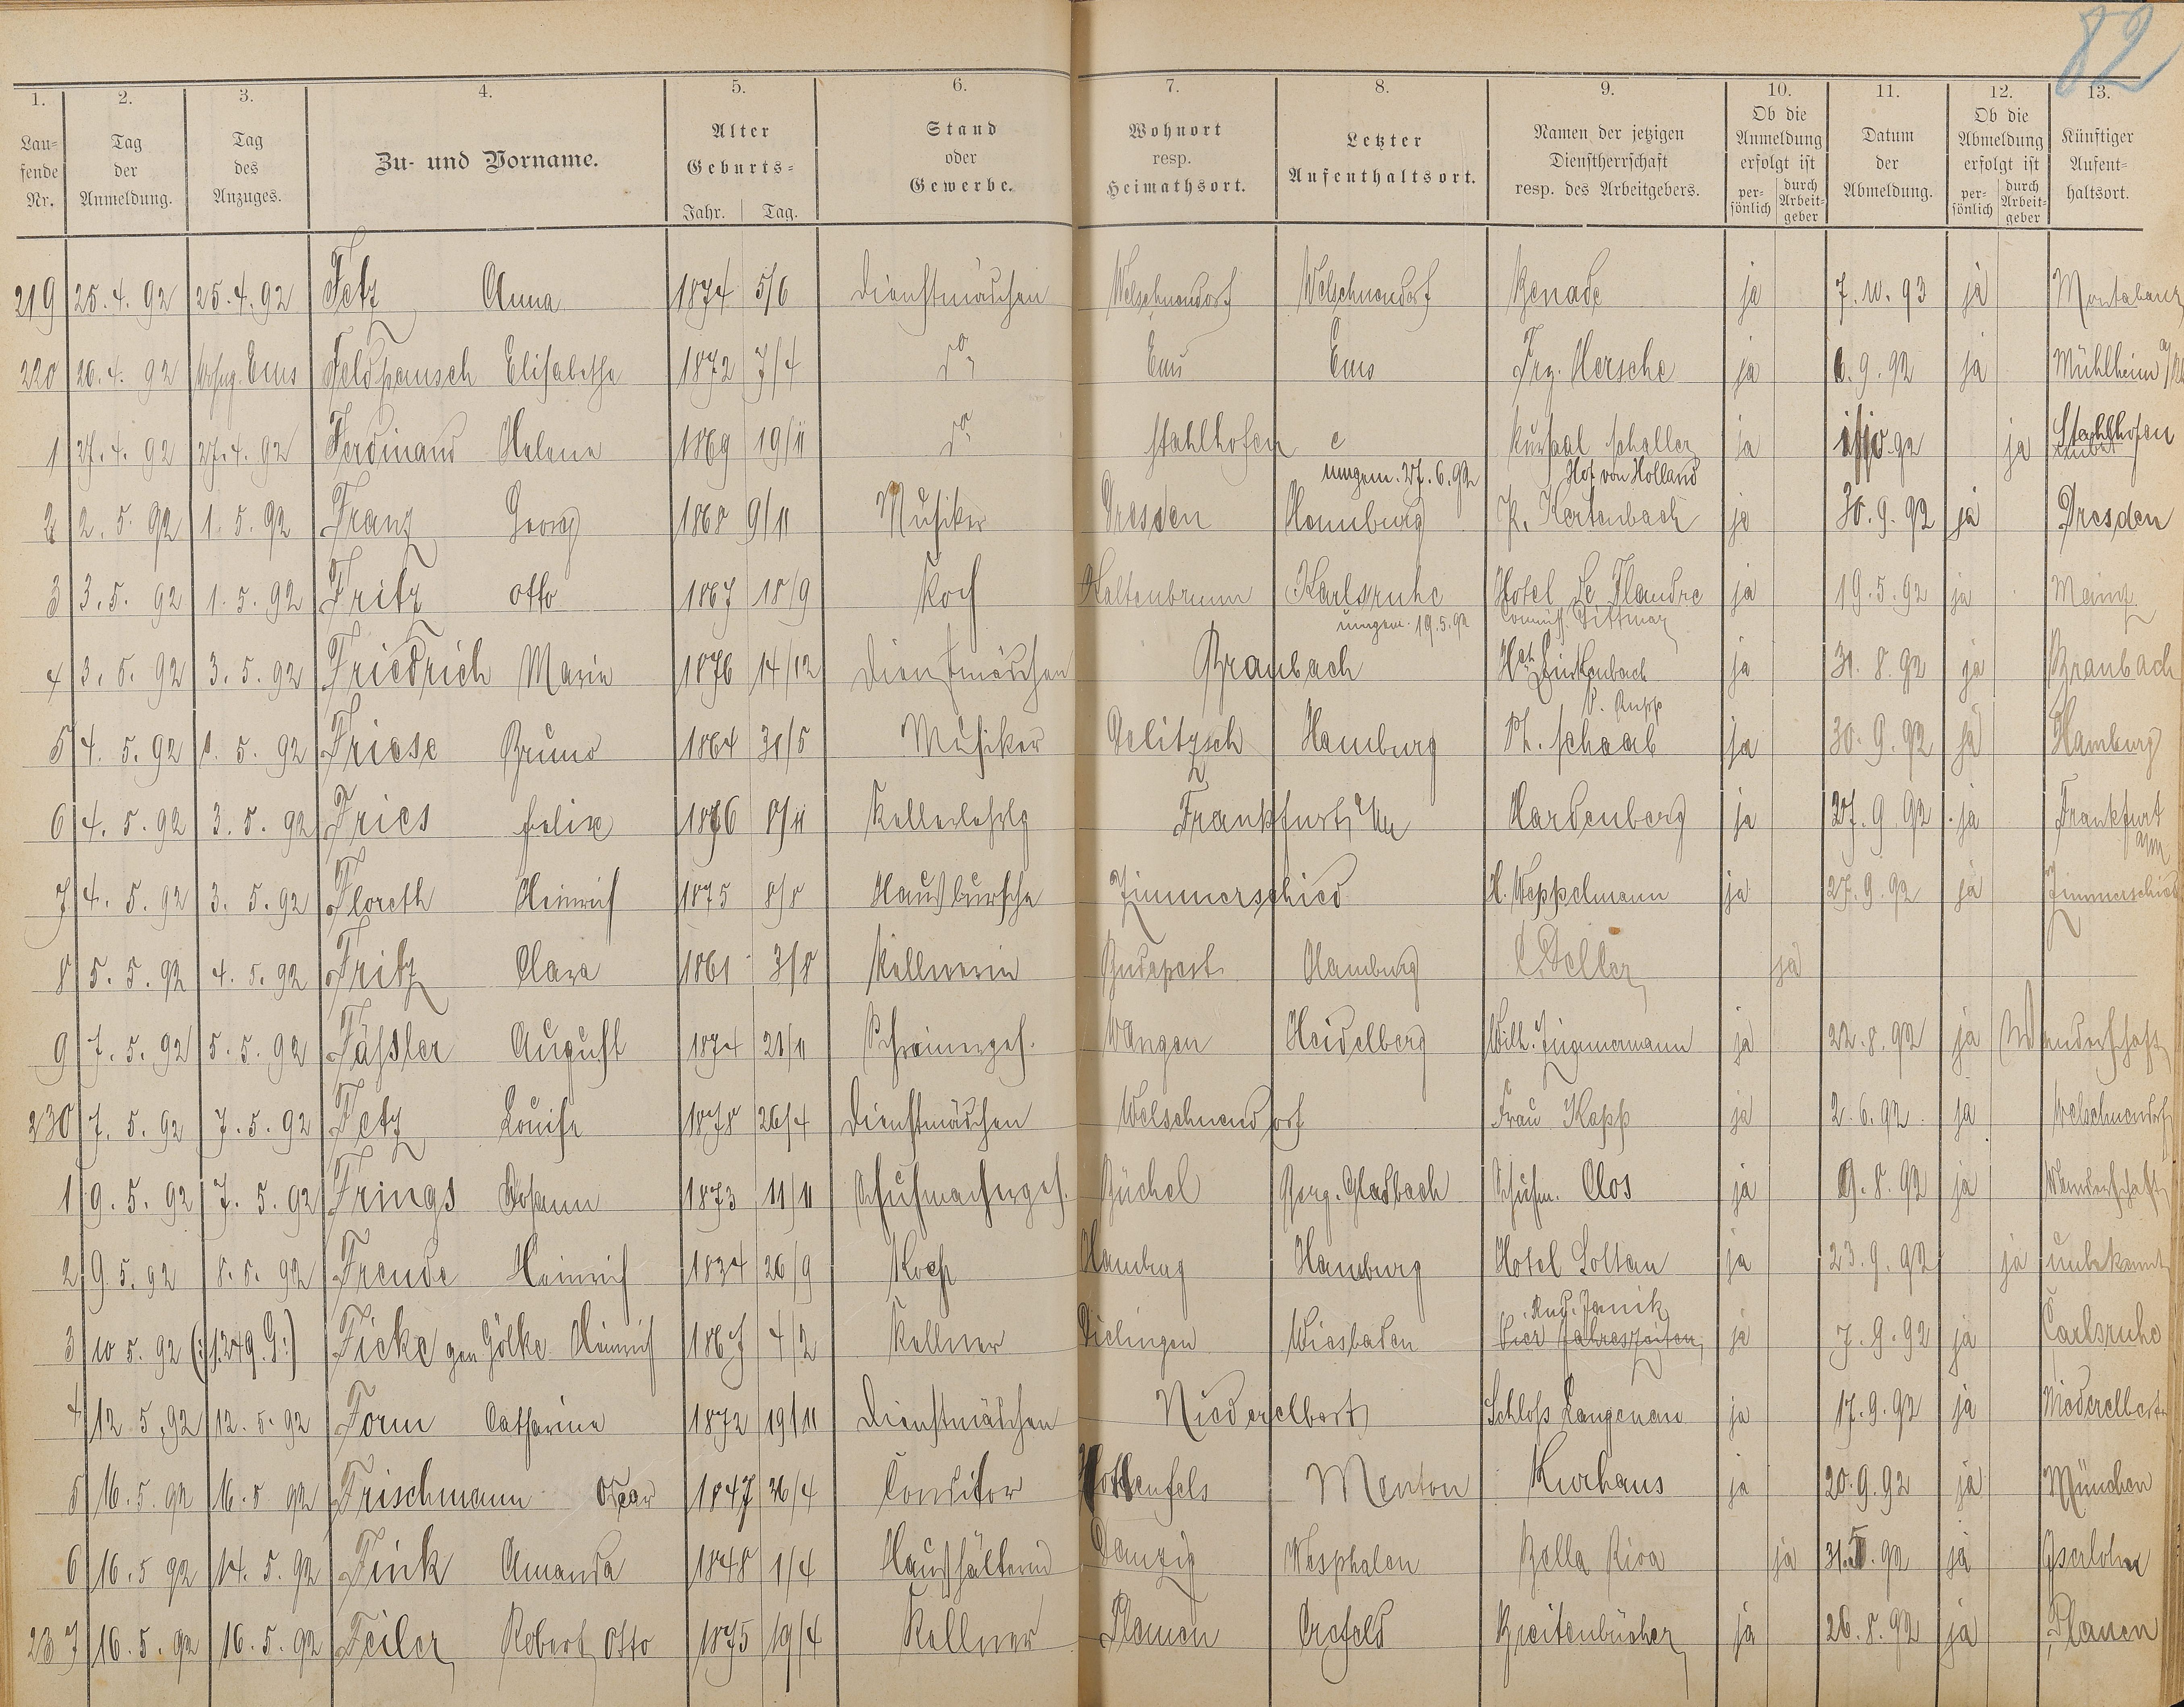 82
1. 2. 3. 4. 5. 6. 7. 8. 9. 10. 11. 12. 13.
Laufende Nr. Tag der Anmeldung. Tag des Anzuges. Zu- und Vorname. Alter Geburts- Jahr. Tag. Stand oder Gewerbe. Wohnort resp. Heimathsort. Letzter Aufenthaltsort. Namen der jetzigen Dienstherrschaft resp. des Arbeitgebers. Ob die Anmeldung erfolgt ist persönlich durch Arbeitgeber Datum der Abmeldung. Ob die Abmeldung erfolgt ist persönlich durch Arbeitgeber Künftiger Aufenthaltsort.
219 25.4.92 25.4.92 Fetz Anna 1874 5/6 Dienstmädchen Welschneudorf Welschneudorf Benade ja 7.10.93 ja Montabaur
220 26.4.92 Ems Feldpausch Elisabethe 1872 7/4 do Ems Ems Frz. Hersche ja 6.9.92 ja Mühlheim
1 27.4.92 27.4.92 Ferdinand Helene 1869 19/11 do Stahlhofen Kursaal Schaller ja ja Stahlhofen
umgem. 27.6.92 Hof von Holland
2 2.5.92 1.5.92 Franz Georg 1868 9/11 Musiker Dresden Hamburg P. Kertenbach ja 30.9.92 ja Dresden
3 3.5.92 1.5.92 Fritz Otto 1867 18/9 Koch Kaltenbrunn Karlsruhe Hotel de Flandre ja 19.5.92 ja Mainz
umgem. 19.5.92 Dittmar
4 3.5.92 3.5.92 Friedrich Marie 1876 14/12 Dienstmädchen Braubach ja 31.8.92 ja Braubach
Rupp
5 4.5.92 1.5.92 Friese Bruno 1864 31/5 Musiker Delitzsch Hamburg Ph. Schaab ja 30.9.92 ja Hamburg
6 4.5.92 3.5.92 Fries Felix 1876 8/11 Kellerlehrlg Frankfurt a/M Hardenberg ja 27.9.92 ja Frankfurt a/M
7 4.5.92 3.5.92 Floreth Heinrich 1875 8/8 Hausbursche Zimmerschied H. Weppelmann ja 27.9.92 ja Zimmerschied
8 5.5.92 4.5.92 Fritz Clara 1861 3/8 Kellnerin Budapest Hamburg C. Deller ja
9 7.5.92 5.5.92 Fäßler August 1874 21/11 Schreinergeh. Wangen Heidelberg Wilh. Zimmermann ja 22.8.92 ja Wanderschaft
230 7.5.92 7.5.92 Fetz Louise 1878 26/4 Dienstmädchen Welschneudorf Frau Kapp ja 2.6.92 ja Welschneudorf
1 9.5.92 7.5.92 Frings Johann 1873 11/11 Schuhmachergeh. Büchel Berg. Gladbach Schuhm. Clos ja 9.8.92 ja Wanderschaft
2 9.5.92 8.5.92 Freude Heinrich 1834 26/9 Koch Hamburg Hamburg Hotel Soltau ja 23.9.92 ja unbekannt
Rud. Janik
3 10 5.92 (:1249.G:) Ficke gen Gölke Heinrich 1867 4/2 Kellner Dielingen Wiesbaden Vier Jahreszeiten ja 7.9.92 ja Carlsruhe
4 12.5.92 12.5.92 Form Catharine 1872 19/11 Dienstmädchen Niederelbert Schloß Langenau ja 17.9.92 ja Niederelbert
5 16.5.92 16.5 92 Frischmann Oscar 1847 26/4 Conditor Menton Kurhaus ja 20.9.92 ja München
6 16.5 92 14.5.92 Fink Amanda 1848 1/4 Haushälterin Danzig Wesphalen Bella Riva ja 31.5.92 ja Iserlohn
237 16.5.92 16.5.92 Feiler Robert Otto 1875 19/4 Kellner Plauen Crefeld Breitenbücher ja 26.8.92 ja Plauen